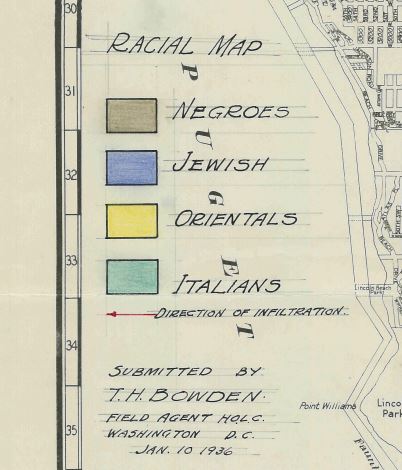 RACIAL MAP
NEGROES
JEWISH
ORIENTALS
ITALIANS
DIRECTION OF INFILTRATION.
SUBMITTED BY
T.H. BOWDEN.
FIELD AGENT H.O.L.C.
WASHINGTON D.C.
JAN. 10 1936
PUGET
30
31
32
33
34
35
Lincoln Beach
Park
Point Williams
Linco
Park
Faunt